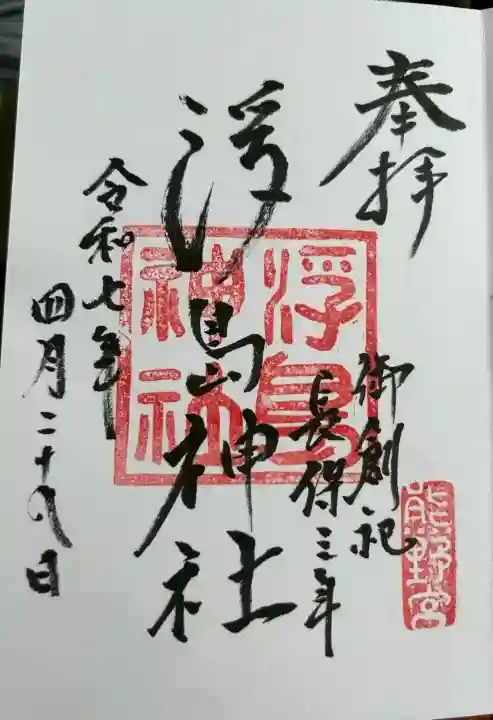 奉拝
御創祀
長保三年
浮島神社
浮島
神社
熊野宮
令和七年
四月二十九日